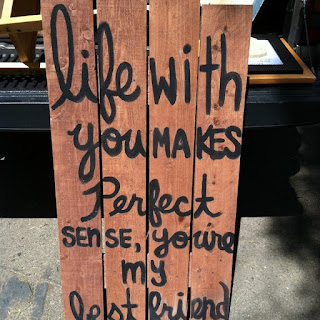 life with
you MAKES
Perfect
SENSE, you're
my
best friend